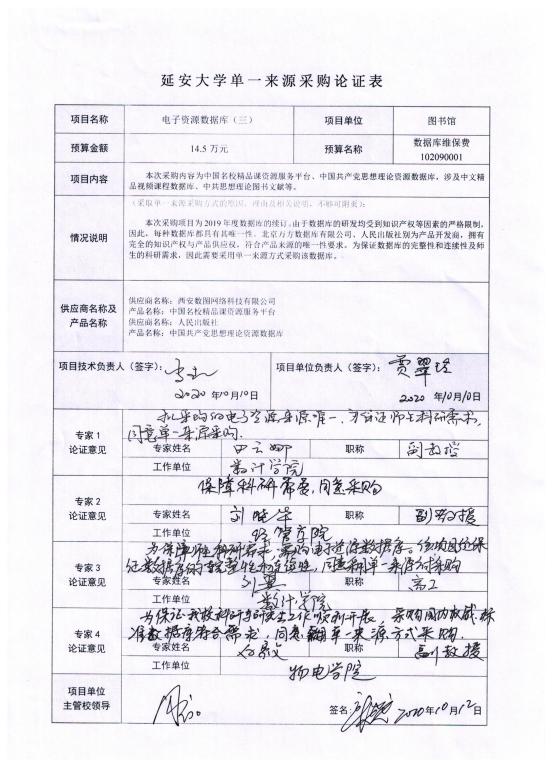 延安大学单一来源采购论证表
项目名称 电子资源数据库（三） 项目单位 图书馆
预算金额 14.5 万元 预算名称 数据库维保费
102090001
项目内容 本次采购内容为中国名校精品课资源服务平台、中国共产党思想理论资源数据库，涉及中文精
品视频课程数据库、中共思想理论图书文献等。
（采取单一来源采购方式的原因、理由及相关说明，不够可附页）：
情况说明 本次采购项目为 2019 年度数据库的续订。由于数据库的研发均受到知识产权等因素的严格限制，
因此，每种数据库都具有其唯一性。北京万方数据库有限公司、人民出版社别为产品开发商，拥有
完全的知识产权与产品供应权，符合产品来源的唯一性要求。为保证数据库的完整性和连续性及师
生的科研需求，因此需要采用单一来源方式采购该数据库。
供应商名称及
产品名称
供应商名称：西安数图网络科技有限公司
产品名称：中国名校精品课资源服务平台
供应商名称：人民出版社
产品名称：中国共产党思想理论资源数据库
项目技术负责人（签字）： 项目单位负责人（签字）： 贾翠玲
2020 年10月10日 2020 年10月10日
专家 1
论证意见
拟采购的电子资源来源唯一，为保证师生科研需求，
同意单一来源采购.
专家姓名 田云娜 职称 副教授
工作单位 数计学院
专家 2
论证意见
保障科研需要，同意采购
专家姓名 刘晓华 职称 副教授
工作单位 经管学院
专家 3
论证意见
为保障师生科研需求，采购电子资源数据库。
证数据库的完整性和连续性，同意采用单一来源方式采购
专家姓名 刘 职称 高工
工作单位 数计学院
专家 4
论证意见
为保证我校科研与研究工作顺利开展，采购国内权威
数据库符合需求，同意单一来源方式采购.
专家姓名 职称 副教授
工作单位 物电学院
项目单位
主管校领导
签名： 2020年10月12日